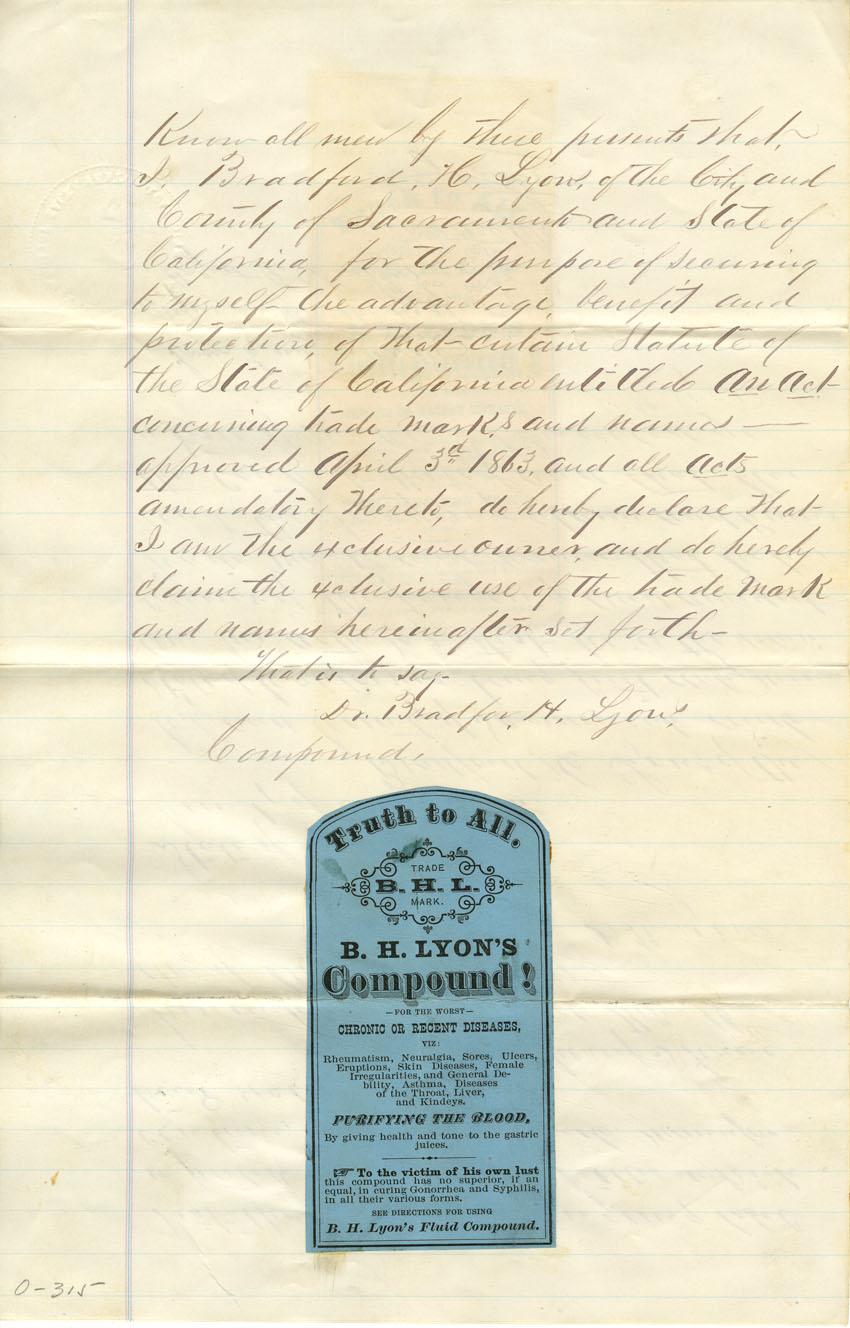 Know all men by these presents that,
I. Bradford, H, Lyon, of the City and
County of Sacramento and State of
California, for the purpose of securing
to myself the advantage, benefit and
protection, of that certain Statute of
the State of California entitled An Act
concerning trade marks and names —
approved April 3rd 1863, and all Acts
amendatory thereto, do hereby declare that
I am the exclusive owner, and do hereby
claim the exclusive use of the trade mark
and names hereinafter set forth—
That is to say—
Dr. Bradfor, H. Lyons,
Compound.
Truth to All.
TRADE
B. H. L.
MARK.
B. H. LYON'S
Compound!
—FOR THE WORST—
CHRONIC OR RECENT DISEASES,
VIZ:
Rheumatism, Neuralgia, Sores, Ulcers,
Eruptions, Skin Diseases, Female
Irregularities, and General De-
bility, Asthma, Diseases
of the Throat, Liver,
and Kindeys.
PURIFYING THE BLOOD,
By giving health and tone to the gastric
juices.
☞ To the victim of his own lust
this compound has no superior, if an
equal, in curing Gonorrhea and Syphilis,
in all their various forms.
SEE DIRECTIONS FOR USING
B. H. Lyon's Fluid Compound.
O-315